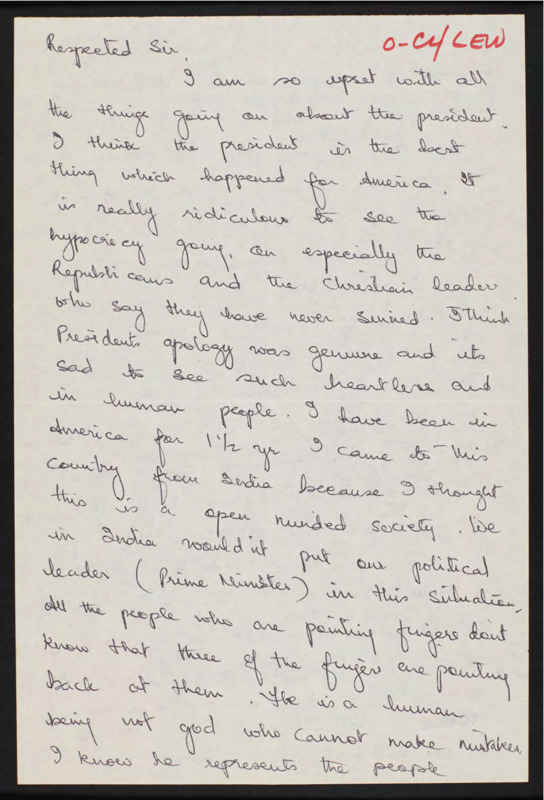 O-C4/LEW
Respected Sir,
I am so upset with all
the things going on about the president.
I think the president is the best
thing which happened for America. It
is really ridiculous to see the
hypocricy going, on especially the
Republicans and the Christian leader
who say they have never sinned. I think
Presidents apology was genuine and its
sad to see such heartless and
in human people. I have been in
America for 1 1/2 yr I came to this
country from India because I thought
this is a open minded society. We
in India would'nt put our political
leader (Prime Minister) in this situation,
All the people who are pointing fingers dont
know that three of the fingers are pointing
back at them. He is a human
being not god who cannot make mistakes,
I know he represents the people